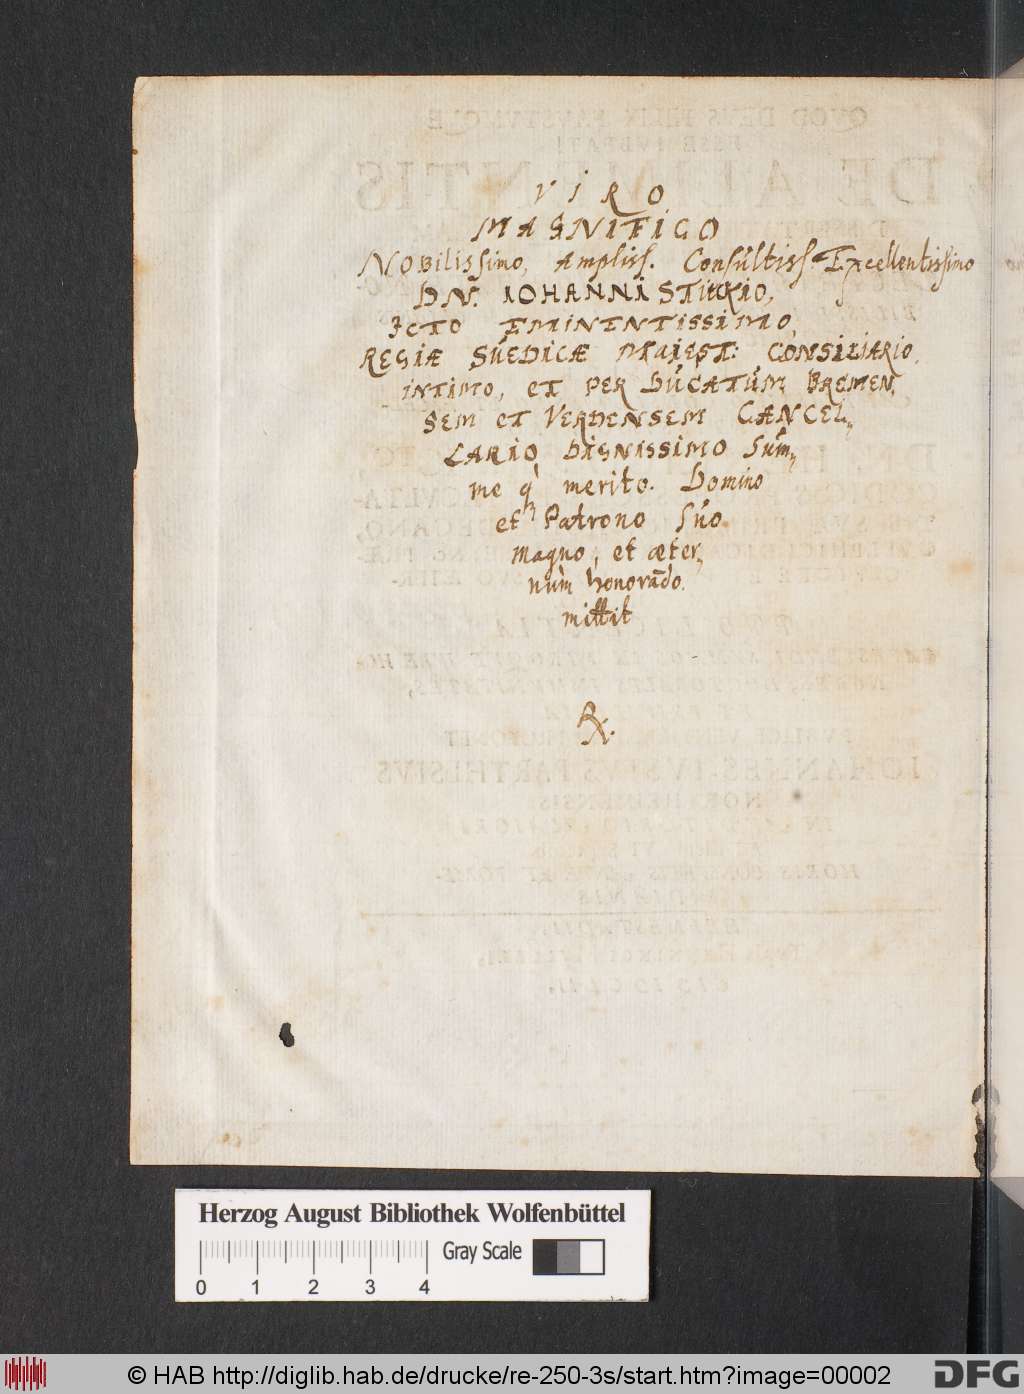 VIRO
MAGNIFICO
Nobilissimo, Ampliss. Consultiss. Excellentissimo
DN. IOHANNI STUCKIO,
ICTO EMINENTISSIMO,
REGIÆ SUEDICÆ MAIEST: CONSILIARIO
INTIMO, ET PER DUCATUM BREMEN,
SEM ET VERDENSEM CANCEL,,
LARIO DIGNISSIMO Sum,,
me q merito. Domino
et Patrono Suo
magno, et æter,,
num honorãdo.
mittit
Herzog August Bibliothek Wolfenbüttel
Gray Scale
0 1 2 3 4
© HAB http://diglib.hab.de/drucke/re-250-3s/start.htm?image=00002
DFG